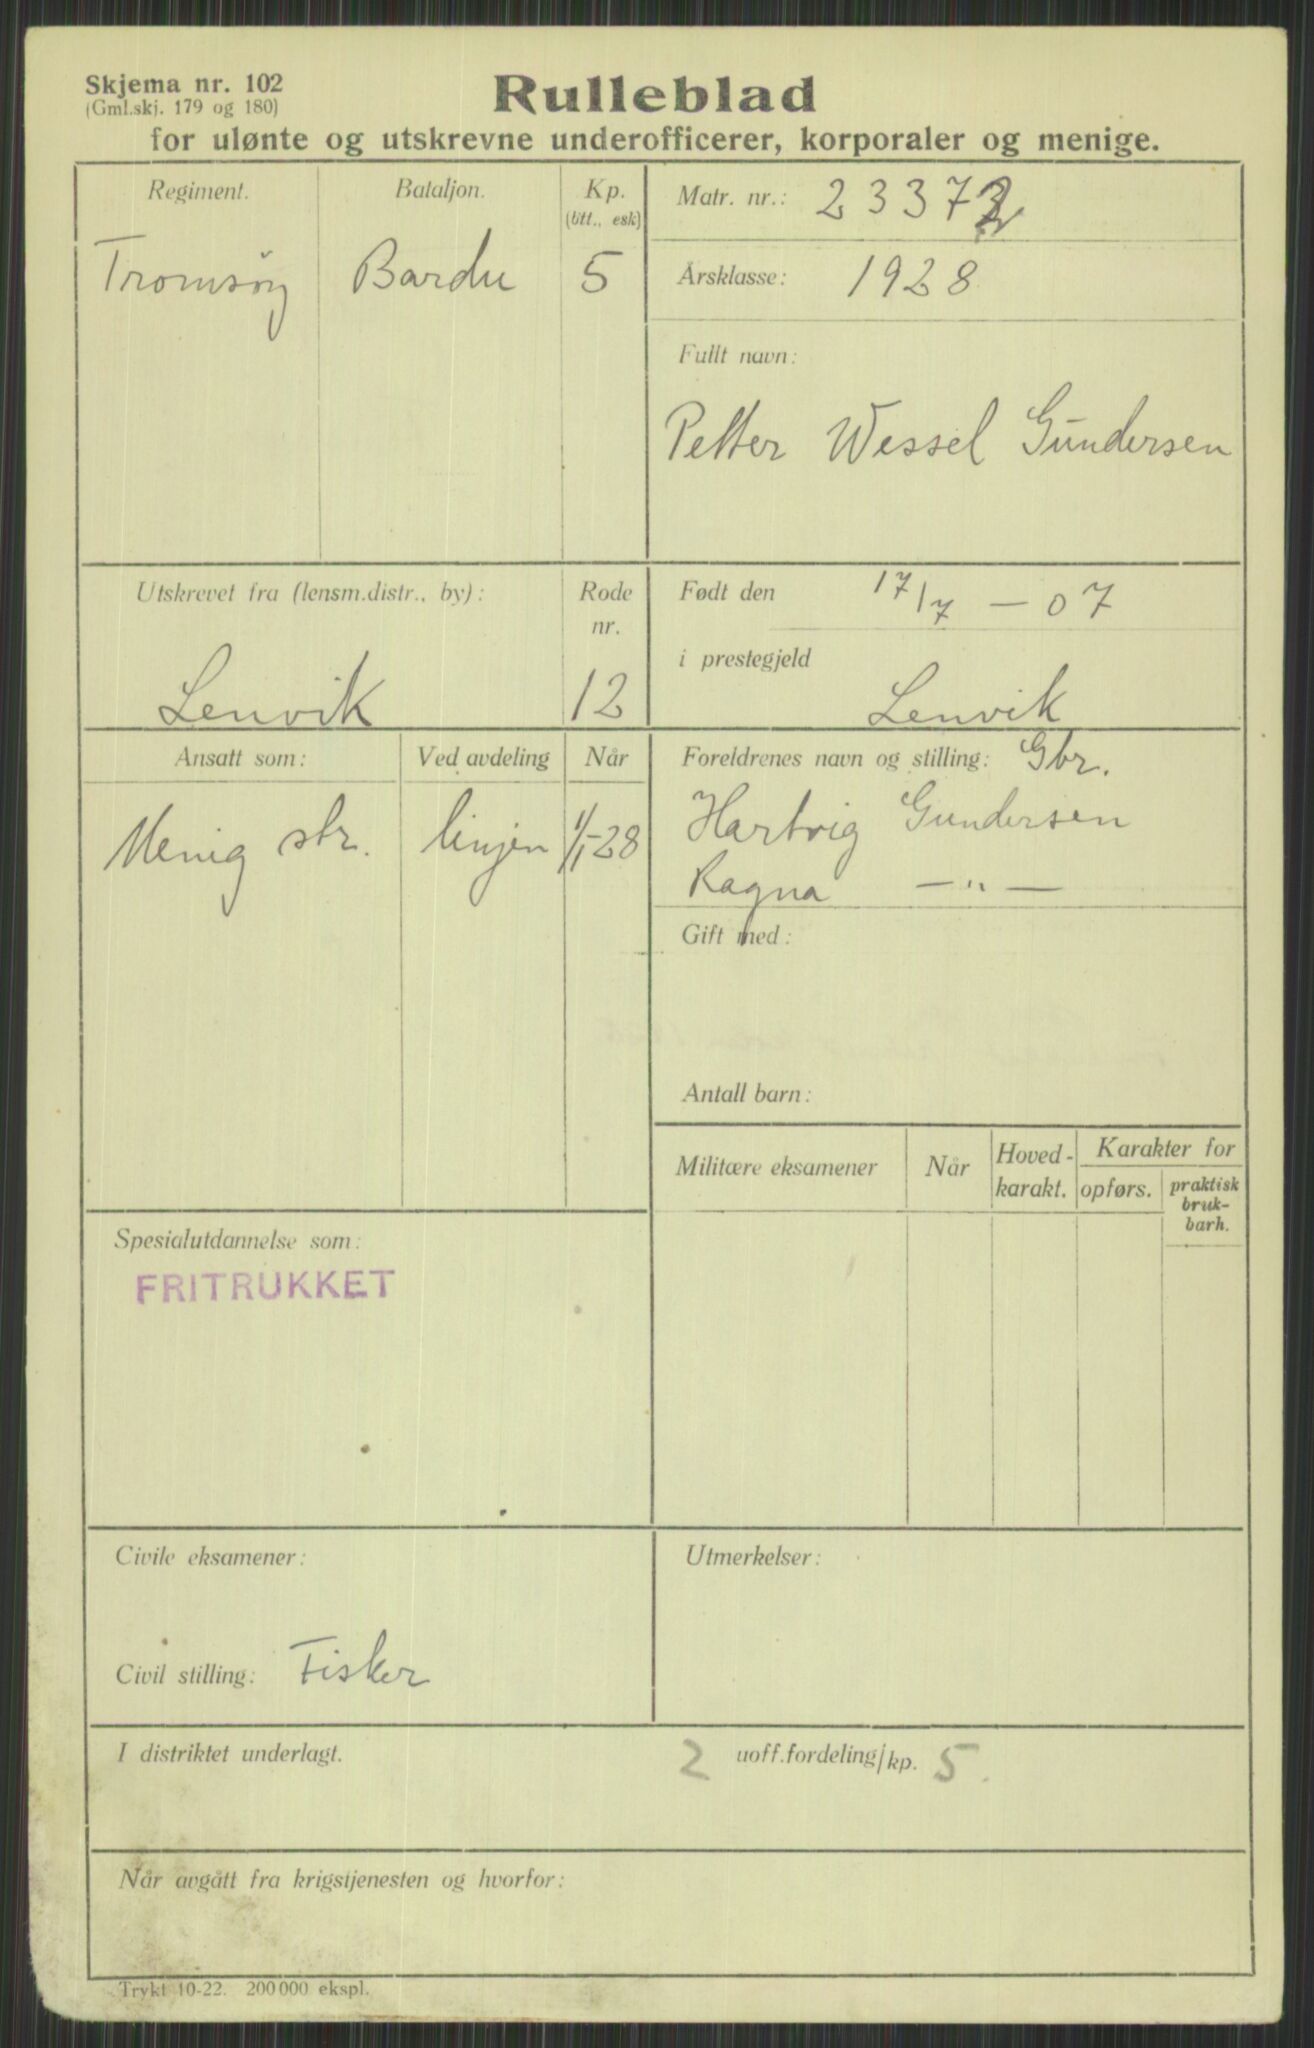 Skjema nr. 102
(Gml.skj. 179 og 180)
Rulleblad
for ulønte og utskrevne underofficerer, korporaler og menige.
Regiment.
Bataljon.
Kp.
(btt., esk)
Tromsøy
Bardu
5
Matr. nr.: 23372
Årsklasse: 1928
Fullt navn:
Petter Wessel Gundersen
Utskrevet fra (lensm.distr., by):
Rode
nr.
Lenvik
12
Født den 17/7 — 07
i prestegjeld
Lenvik
Ansatt som:
Ved avdeling
Når
Menig str.
linjen
1/1-28
Foreldrenes navn og stilling: Gbr.
Hartvig Gundersen
Ragna — " —
Gift med:
Antall barn:
Militære eksamener
Når
Hoved-
karakt.
Karakter for
opførs.
praktisk
bruk-
barh.
Spesialutdannelse som:
FRITRUKKET
Civile eksamener:
Civil stilling: Fisker
Utmerkelser:
I distriktet underlagt.
2 uoff.fordeling/kp. 5.
Når avgått fra krigstjenesten og hvorfor:
Trykt 10-22. 200000 ekspl.